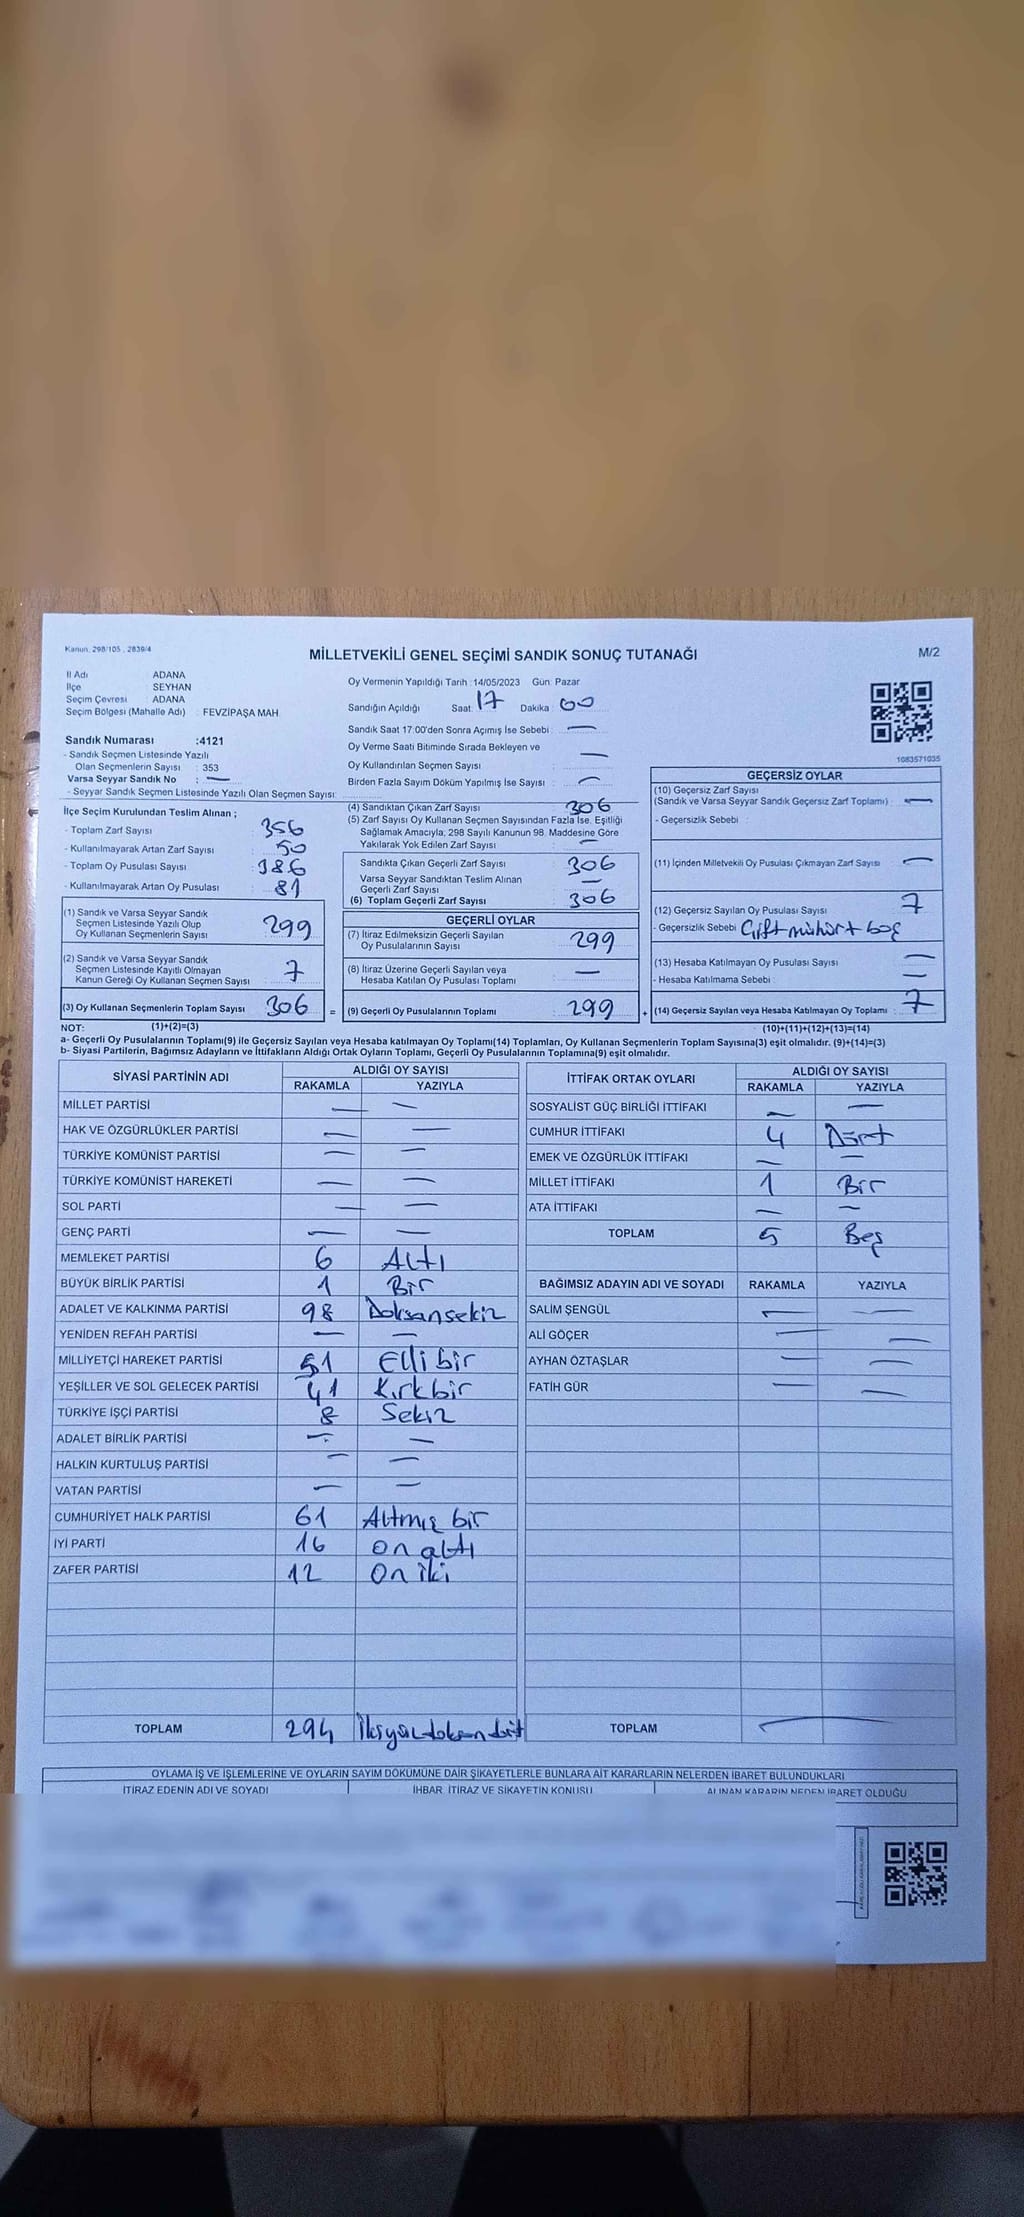 Kanun, 298/105 , 2839/4
MİLLETVEKİLİ GENEL SEÇİMİ SANDIK SONUÇ TUTANAĞI
M/2
İl Adı ADANA
İlçe SEYHAN
Seçim Çevresi : ADANA
Seçim Bölgesi (Mahalle Adı) : FEVZİPAŞA MAH.
Sandık Numarası :4121
- Sandık Seçmen Listesinde Yazılı
Olan Seçmenlerin Sayısı : 353
Varsa Seyyar Sandık No : —
- Seyyar Sandık Seçmen Listesinde Yazılı Olan Seçmen Sayısı:
Oy Vermenin Yapıldığı Tarih :14/05/2023 Gün: Pazar
Sandığın Açıldığı Saat: 17 Dakika : 00
Sandık Saat 17:00'den Sonra Açımış İse Sebebi : —
Oy Verme Saati Bitiminde Sırada Bekleyen ve
Oy Kullandırılan Seçmen Sayısı : —
Birden Fazla Sayım Döküm Yapılmış İse Sayısı : —
1083571035
İlçe Seçim Kurulundan Teslim Alınan ;
- Toplam Zarf Sayısı : 356
- Kullanılmayarak Artan Zarf Sayısı : 50
- Toplam Oy Pusulası Sayısı : 386
- Kullanılmayarak Artan Oy Pusulası : 81
(1) Sandık ve Varsa Seyyar Sandık
Seçmen Listesinde Yazılı Olup
Oy Kullanan Seçmenlerin Sayısı 299
(2) Sandık ve Varsa Seyyar Sandık
Seçmen Listesinde Kayıtlı Olmayan
Kanun Gereği Oy Kullanan Seçmen Sayısı 7
(3) Oy Kullanan Seçmenlerin Toplam Sayısı 306 =
(4) Sandıktan Çıkan Zarf Sayısı 306
(5) Zarf Sayısı Oy Kullanan Seçmen Sayısından Fazla İse, Eşitliği
Sağlamak Amacıyla; 298 Sayılı Kanunun 98. Maddesine Göre
Yakılarak Yok Edilen Zarf Sayısı : —
Sandıkta Çıkan Geçerli Zarf Sayısı 306
Varsa Seyyar Sandıktan Teslim Alınan
Geçerli Zarf Sayısı —
(6) Toplam Geçerli Zarf Sayısı 306
GEÇERLİ OYLAR
(7) İtiraz Edilmeksizin Geçerli Sayılan
Oy Pusulalarının Sayısı 299
(8) İtiraz Üzerine Geçerli Sayılan veya
Hesaba Katılan Oy Pusulası Toplamı —
(9) Geçerli Oy Pusulalarının Toplamı 299 +
GEÇERSİZ OYLAR
(10) Geçersiz Zarf Sayısı
(Sandık ve Varsa Seyyar Sandık Geçersiz Zarf Toplamı) : —
- Geçersizlik Sebebi :
(11) İçinden Milletvekili Oy Pusulası Çıkmayan Zarf Sayısı : —
(12) Geçersiz Sayılan Oy Pusulası Sayısı : 7
- Geçersizlik Sebebi Çift mühür+boş
(13) Hesaba Katılmayan Oy Pusulası Sayısı : —
- Hesaba Katılmama Sebebi : —
(14) Geçersiz Sayılan veya Hesaba Katılmayan Oy Toplamı : 7
NOT: (1)+(2)=(3)
(10)+(11)+(12)+(13)=(14)
a- Geçerli Oy Pusulalarının Toplamı(9) ile Geçersiz Sayılan veya Hesaba katılmayan Oy Toplamı(14) Toplamları, Oy Kullanan Seçmenlerin Toplam Sayısına(3) eşit olmalıdır. (9)+(14)=(3)
b- Siyasi Partilerin, Bağımsız Adayların ve İttifakların Aldığı Ortak Oyların Toplamı, Geçerli Oy Pusulalarının Toplamına(9) eşit olmalıdır.
SİYASİ PARTİNİN ADI ALDIĞI OY SAYISI
RAKAMLA YAZIYLA
MİLLET PARTİSİ — —
HAK VE ÖZGÜRLÜKLER PARTİSİ — —
TÜRKİYE KOMÜNİST PARTİSİ — —
TÜRKİYE KOMÜNİST HAREKETİ — —
SOL PARTİ — —
GENÇ PARTİ — —
MEMLEKET PARTİSİ 6 Altı
BÜYÜK BİRLİK PARTİSİ 1 Bir
ADALET VE KALKINMA PARTİSİ 98 Doksansekiz
YENİDEN REFAH PARTİSİ — —
MİLLİYETÇİ HAREKET PARTİSİ 51 Elli bir
YEŞİLLER VE SOL GELECEK PARTİSİ 41 Kırkbir
TÜRKİYE İŞÇİ PARTİSİ 8 Sekiz
ADALET BİRLİK PARTİSİ — —
HALKIN KURTULUŞ PARTİSİ — —
VATAN PARTİSİ — —
CUMHURİYET HALK PARTİSİ 61 Altmış bir
İYİ PARTİ 16 on altı
ZAFER PARTİSİ 12 On iki
TOPLAM 294 İkiyüzdoksandört
İTTİFAK ORTAK OYLARI ALDIĞI OY SAYISI
RAKAMLA YAZIYLA
SOSYALİST GÜÇ BİRLİĞİ İTTİFAKI — —
CUMHUR İTTİFAKI 4 Dört
EMEK VE ÖZGÜRLÜK İTTİFAKI — —
MİLLET İTTİFAKI 1 Bir
ATA İTTİFAKI — —
TOPLAM 5 Beş
BAĞIMSIZ ADAYIN ADI VE SOYADI RAKAMLA YAZIYLA
SALİM ŞENGÜL — —
ALİ GÖÇER — —
AYHAN ÖZTAŞLAR — —
FATİH GÜR — —
TOPLAM —
OYLAMA İŞ VE İŞLEMLERİNE VE OYLARIN SAYIM DÖKÜMÜNE DAİR ŞİKAYETLERLE BUNLARA AİT KARARLARIN NELERDEN İBARET BULUNDUKLARI
İTİRAZ EDENİN ADI VE SOYADI İHBAR, İTİRAZ VE ŞİKAYETİN KONUSU ALINAN KARARIN NEDEN İBARET OLDUĞU